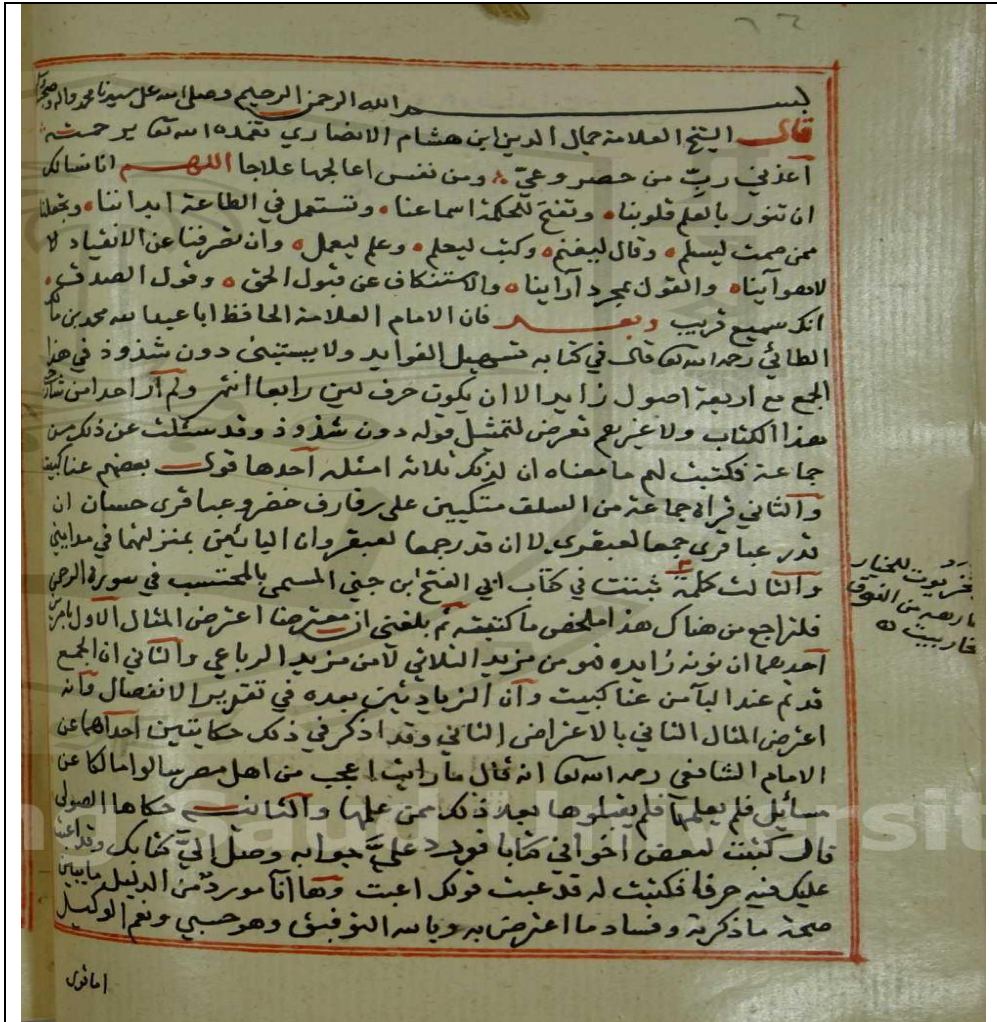 بسم الله الرحمن الرحيم وصلى الله على سيدنا محمد واله وصحبه
قال الشيخ العلامة جمال الدين ابن هشام الانصاري تغمده الله تعا برحمته
أعذني ربّ من حصر وعيّ ومن نفس اعالجها علاجا اللهم انا نسالك
ان تنور بالعلم قلوبنا وتفتح للحكمة اسماعنا وتستعمل في الطاعة ابداننا وتجعلنا
ممن صمت ليسلم وقال ليغنم وكتب ليعلم وعلم ليعمل وان تصرفنا عن الانقياد لا
لاهوآينا والقول بمجرد آرآينا والاستنكاف عن قبول الحق وقول الصدق
انك سميع قريب وبعد فان الامام العلامة الحافظ ابا عبد الله محمد بن مالك
الطائي رحمه الله تعا قال في كتابه تسهيل الفوايد ولا يستبقى دون شذوذ في هذا
الجمع مع اربعة اصول زايد الا ان يكون حرف لين رابعا انتهى ولم أر احدا من شارحي
هذا الكتاب ولا غيرهم تعرض لتمثيل قوله دون شذوذ وقد سئلت عن ذلك من
جماعة فكتبت لهم ما معناه ان لذلك ثلاثة امثلة أحدها قول بعضهم عناكبيت
والثاني قراة جماعة من السلف متكيين على رفارف خضر وعباقرى حسان ان
قدر عباقرى جمعا لعبقري لا ان قدر جمعا لعبقر وان اليائين بمنزلتهما في مدايني
والثالث كلمة ثبتت في كتاب ابي الفتح ابن جني المسمى بالمحتسب في سورة الرحمن
فلتراجع من هناك هذا ملخص ما كتبته ثم بلغني ان معترضا اعترض المثال الاول بامرين
احدهما ان نونه زايده فهو من مزيد الثلاثي لا من مزيد الرباعي والثاني ان الجمع
قد تم عند البآ من عناكبيت وأن الزيادتين بعده في تقدير الانفصال وأنه
اعترض المثال الثاني بالاعتراض الثاني وقد اذكر في ذلك حكايتين احداهما عن
الامام الشافعي رحمه الله تعا انه قال ما رايت اعجب من اهل مصر سالوا مالكا عن
مسائل فلم يعلمها فلم يقبلوها بعد ذلك ممن علمها والثانية حكاها الصولي
قال كتبت لبعض اخواني كتابا فورد عليَّ جوابه وصل اليّ كتابك وقد اعبت
عليك فيه حرفا فكتبت له قد عبت قولك اعبت وها أنا مورد من الدليل ما يبين
صحة ما ذكرته وفساد ما اعترض به وبالله التوفيق وهو حسبي ونعم الوكيل
اما قول
للخيار
من النوق
خاربيت
King Saud University